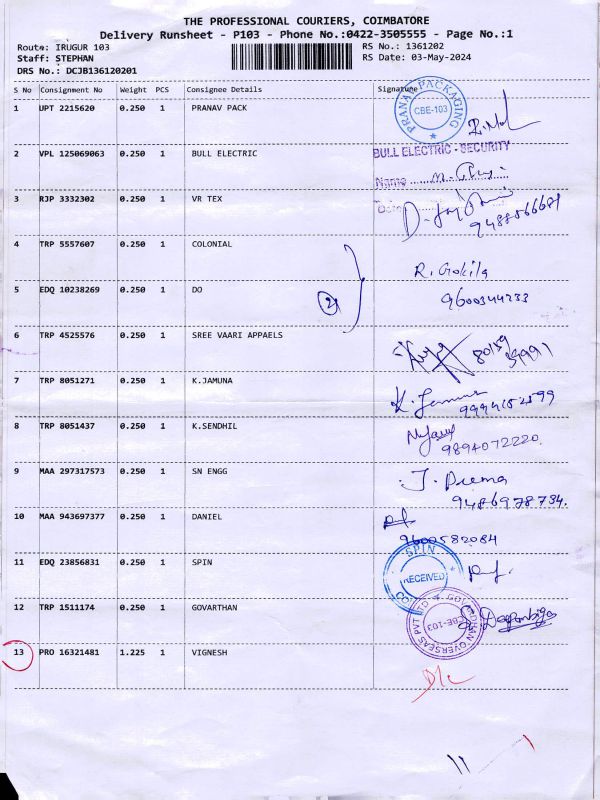 THE PROFESSIONAL COURIERS, COIMBATORE
Delivery Runsheet - P103 - Phone No.:0422-3505555 - Page No.:1
Route: IRUGUR 103 RS No.: 1361202
Staff: STEPHAN RS Date: 03-May-2024
DRS No.: DCJB136120201
S No Consignment No Weight PCS Consignee Details Signature
1 UPT 2215620 0.250 1 PRANAV PACK
PRANAV PACKAGING CBE-103
2 VPL 125069063 0.250 1 BULL ELECTRIC
BULL ELECTRIC - SECURITY
Name
3 RJP 3332302 0.250 1 VR TEX
Date
4 TRP 5557607 0.250 1 COLONIAL
R. Gokila
5 EDQ 10238269 0.250 1 DO
2
9600344233
6 TRP 4525576 0.250 1 SREE VAARI APPAELS
80159
39991
7 TRP 8051271 0.250 1 K.JAMUNA
K. Jamuna
9994152599
8 TRP 8051437 0.250 1 K.SENDHIL
9894072220
9 MAA 297317573 0.250 1 SN ENGG
J. Prema
9486978734.
10 MAA 943697377 0.250 1 DANIEL
9600582084
11 EDQ 23856831 0.250 1 SPIN
SPIN RECEIVED
12 TRP 1511174 0.250 1 GOVARTHAN
OVERSEAS PVT LTD CBE-103
13 PRO 16321481 1.225 1 VIGNESH
D/c